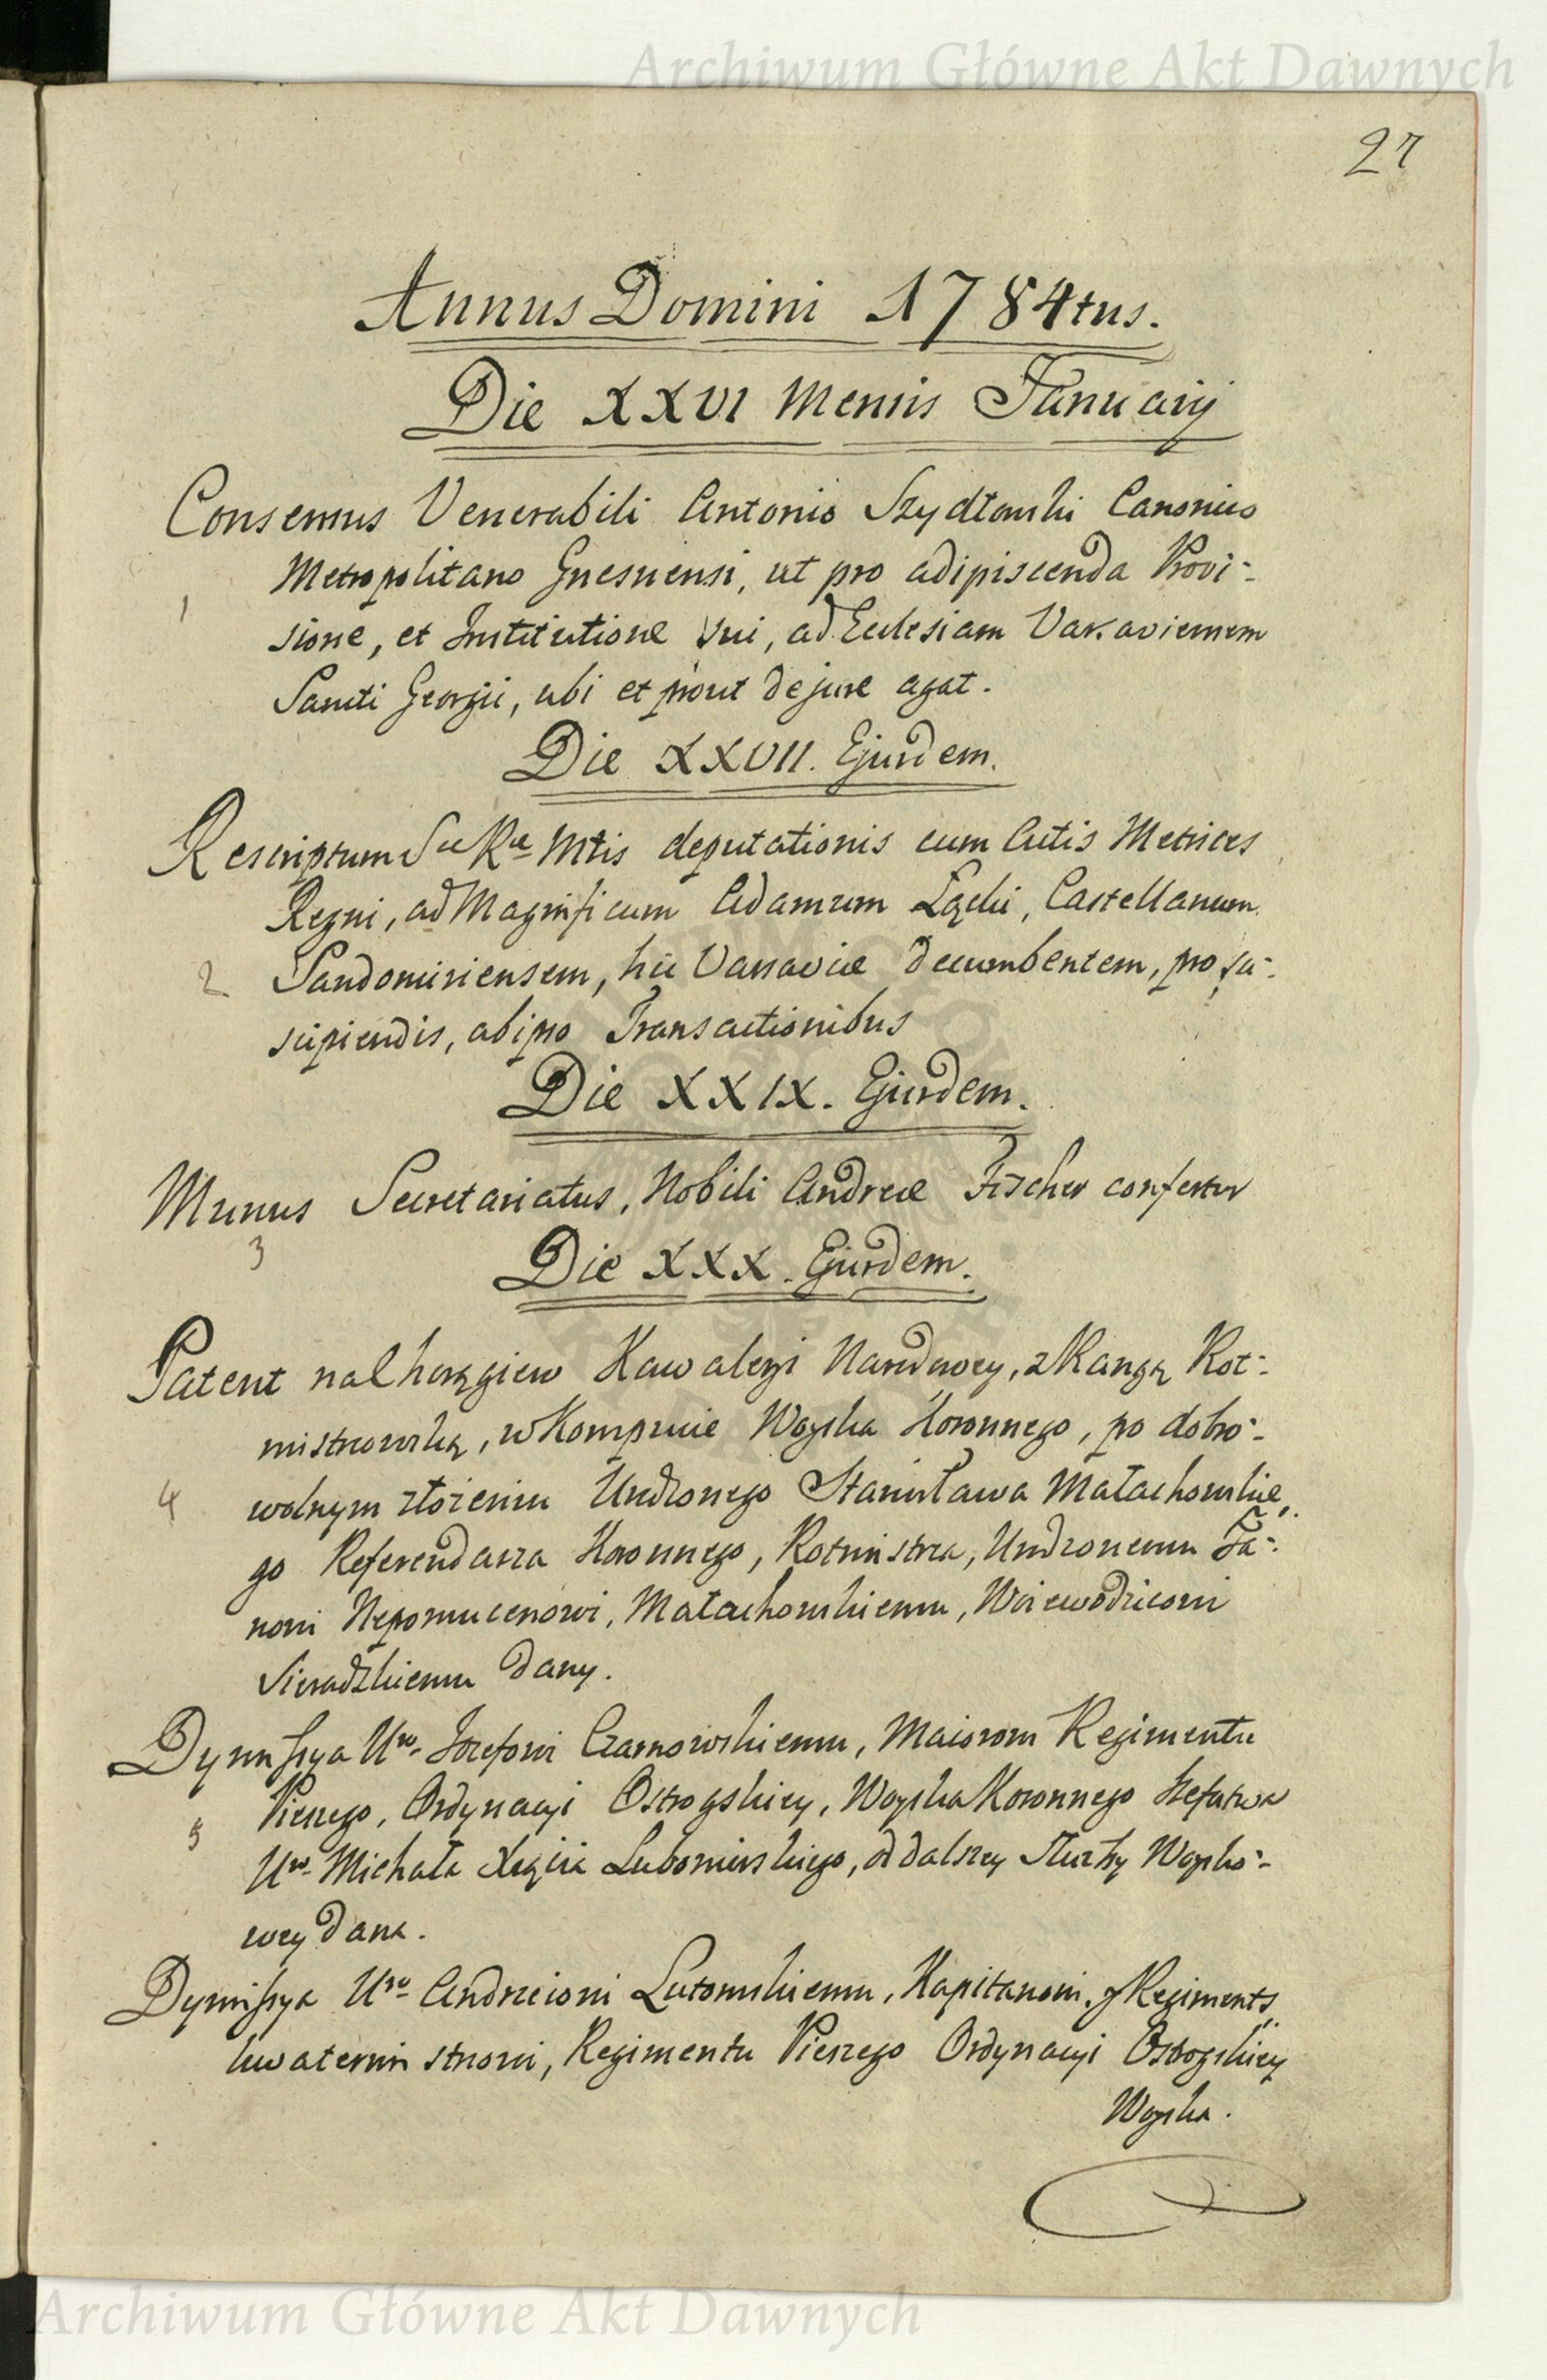 Archiwum Główne Akt Dawnych
27
Annus Domini 1784tus.
Die XXVI Mensis Januarij
Consensus Venerabili Antonio Szydłowski Canonico
Metropolitano Gnesnensi, ut pro adipiscenda Provi=
1
sione, et Institutione sui, ad Ecclesiam Varsaviensem
Sancti Georgii, ubi et prout de jure agat.
Die XXVII. Ejusdem.
Rescriptum Sae Rae Mtis deputationis cum Actis Metrices
Regni, ad Magnificum Adamum Łącki, Castellanum
2 Sandomiriensem, hic Varsaviae decumbentem, pro su=
scipiendis, ab ipso Transactionibus
Die XXIX. Ejusdem.
Munus Secretariatus, Nobili Andreae Fischer confertur
3
Die XXX. Ejusdem.
Patent na Chorągiew Kawaleryi Narodowey, z Rangą Rot=
mistrzowską, w Kompucie Woyska Koronnego, po dobro=
4 wolnym złożeniu Urodzonego Stanisława Małachowskie,,
go Referendarza Koronnego, Rotmistrza, Urodzonemu Ja=
nowi Nepomucenowi, Małachowskiemu, Woiewodzicowi
Sieradzkiemu dany.
Dymissya Uro Jozefowi Czarnowskiemu, Maiorowi Regimentu
5 Pieszego, Ordynacyi Ostrogskiey, Woyska Koronnego Szefostwa
Uro Michała Xiążęcia Lubomirskiego, od dalszey Służby Woysko=
wey dana.
Dymissya Uro Andrzeiowi Lutomskiemu, Kapitanowi, y Regiments,,
kwatermistrzowi, Regimentu Pieszego Ordynacyi Ostrogskiey
Woyska.
Archiwum Główne Akt Dawnych